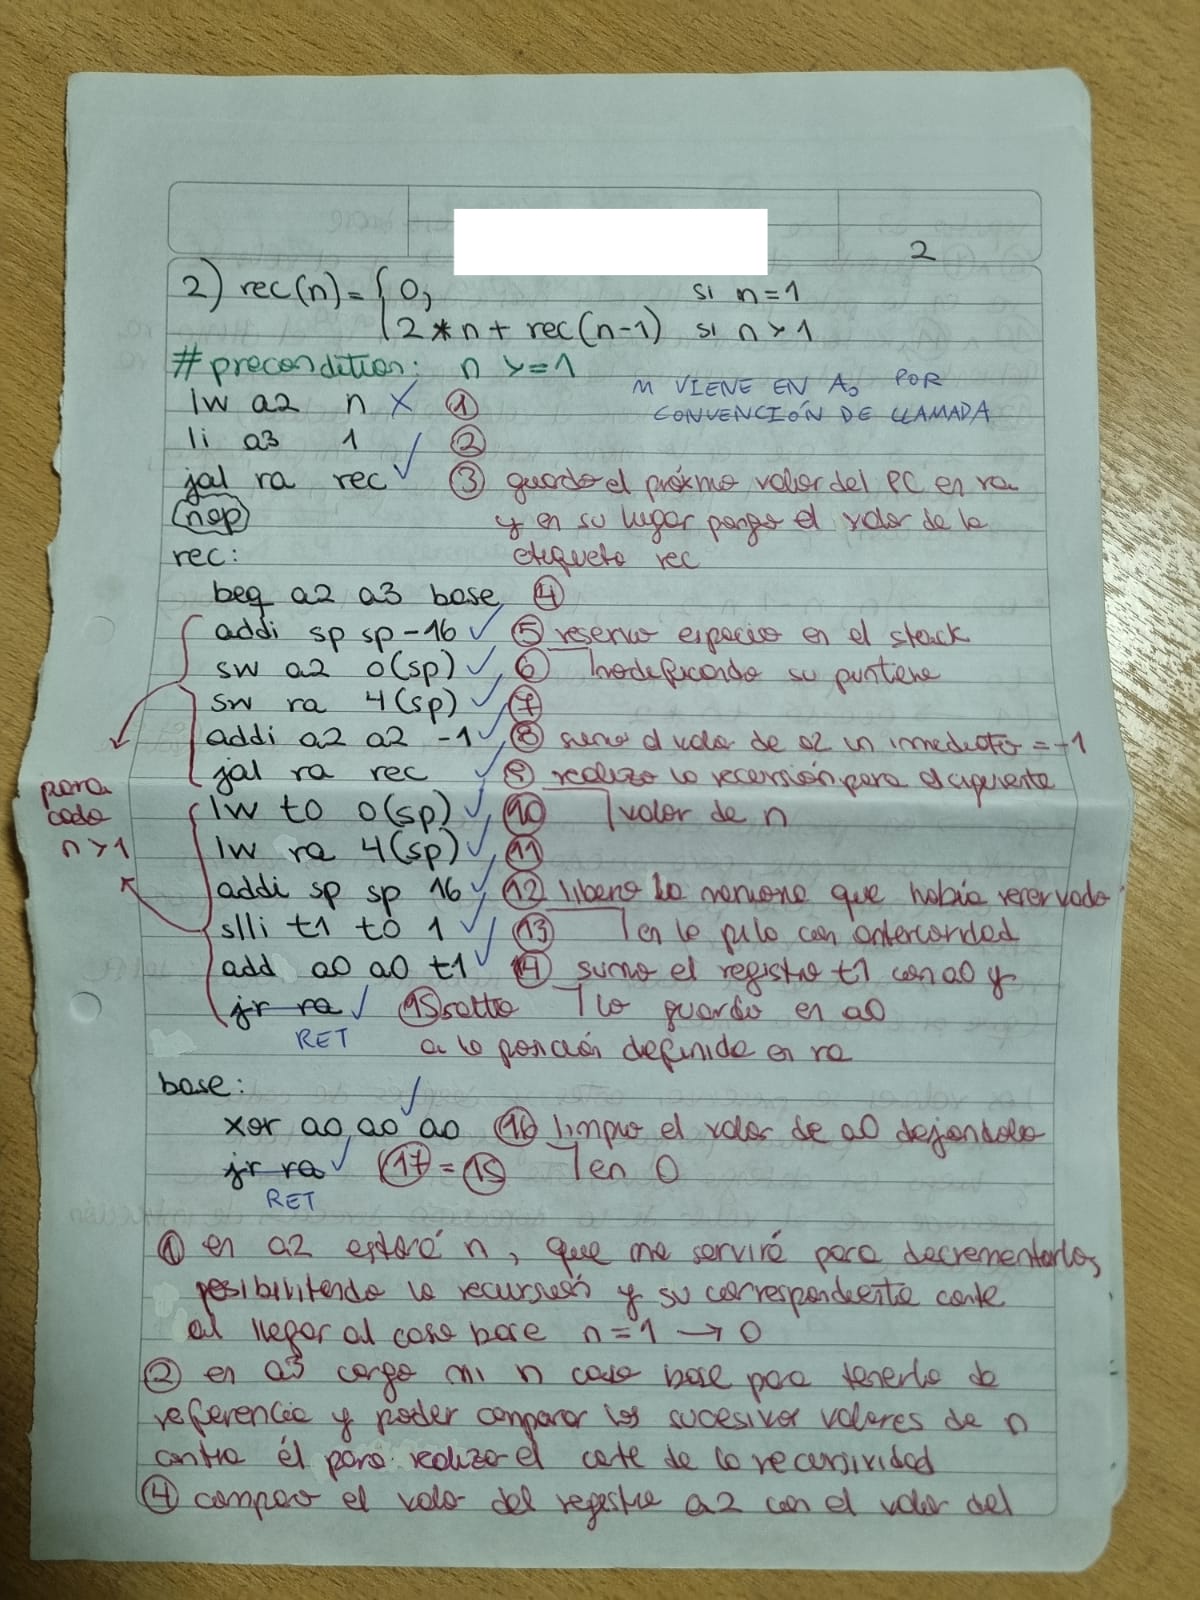 2
2) rec(n) = { 0, si n=1
2*n + rec(n-1) si n > 1
#precondition: n >= 1
lw a2 n X ①
N VIENE EN A0 POR
CONVENCIÓN DE LLAMADA
li a3 1 ✓ ②
jal ra rec ✓ ③ guardo el próximo valor del PC en ra
(nop) y en su lugar pongo el valor de la
rec: etiqueta rec
beq a2 a3 base ④
addi sp sp -16 ✓ ⑤ reservo espacio en el stack
sw a2 0(sp) ✓ ⑥ modificando su puntero
sw ra 4(sp) ✓ ⑦
addi a2 a2 -1 ✓ ⑧ sumo al valor de a2 un inmediato = -1
jal ra rec ✓ ⑨ realizo la recursión para el siguiente
para
cada
n > 1
lw t0 0(sp) ✓ ⑩ valor de n
lw ra 4(sp) ✓ ⑪
addi sp sp 16 ✓ ⑫ libero la memoria que había reservado
slli t1 t0 1 ✓ ⑬ en la pila con anterioridad
add a0 a0 t1 ✓ ⑭ sumo el registro t1 con a0 y
jr ra ✓ ⑮ salto lo guardo en a0
RET a la posición definida en ra
base: ✓
xor a0, a0 a0 ⑯ limpio el valor de a0 dejándolo
jr ra ✓ ⑰ = ⑮ en 0
RET
① en a2 estará n, que me servirá para decrementarlo,
posibilitando la recursión y su correspondiente corte
al llegar al caso base n=1 → 0
② en a3 cargo mi n caso base para tenerlo de
referencia y poder comparar los sucesivos valores de n
contra él para realizar el corte de la recursividad
④ comparo el valor del registro a2 con el valor del